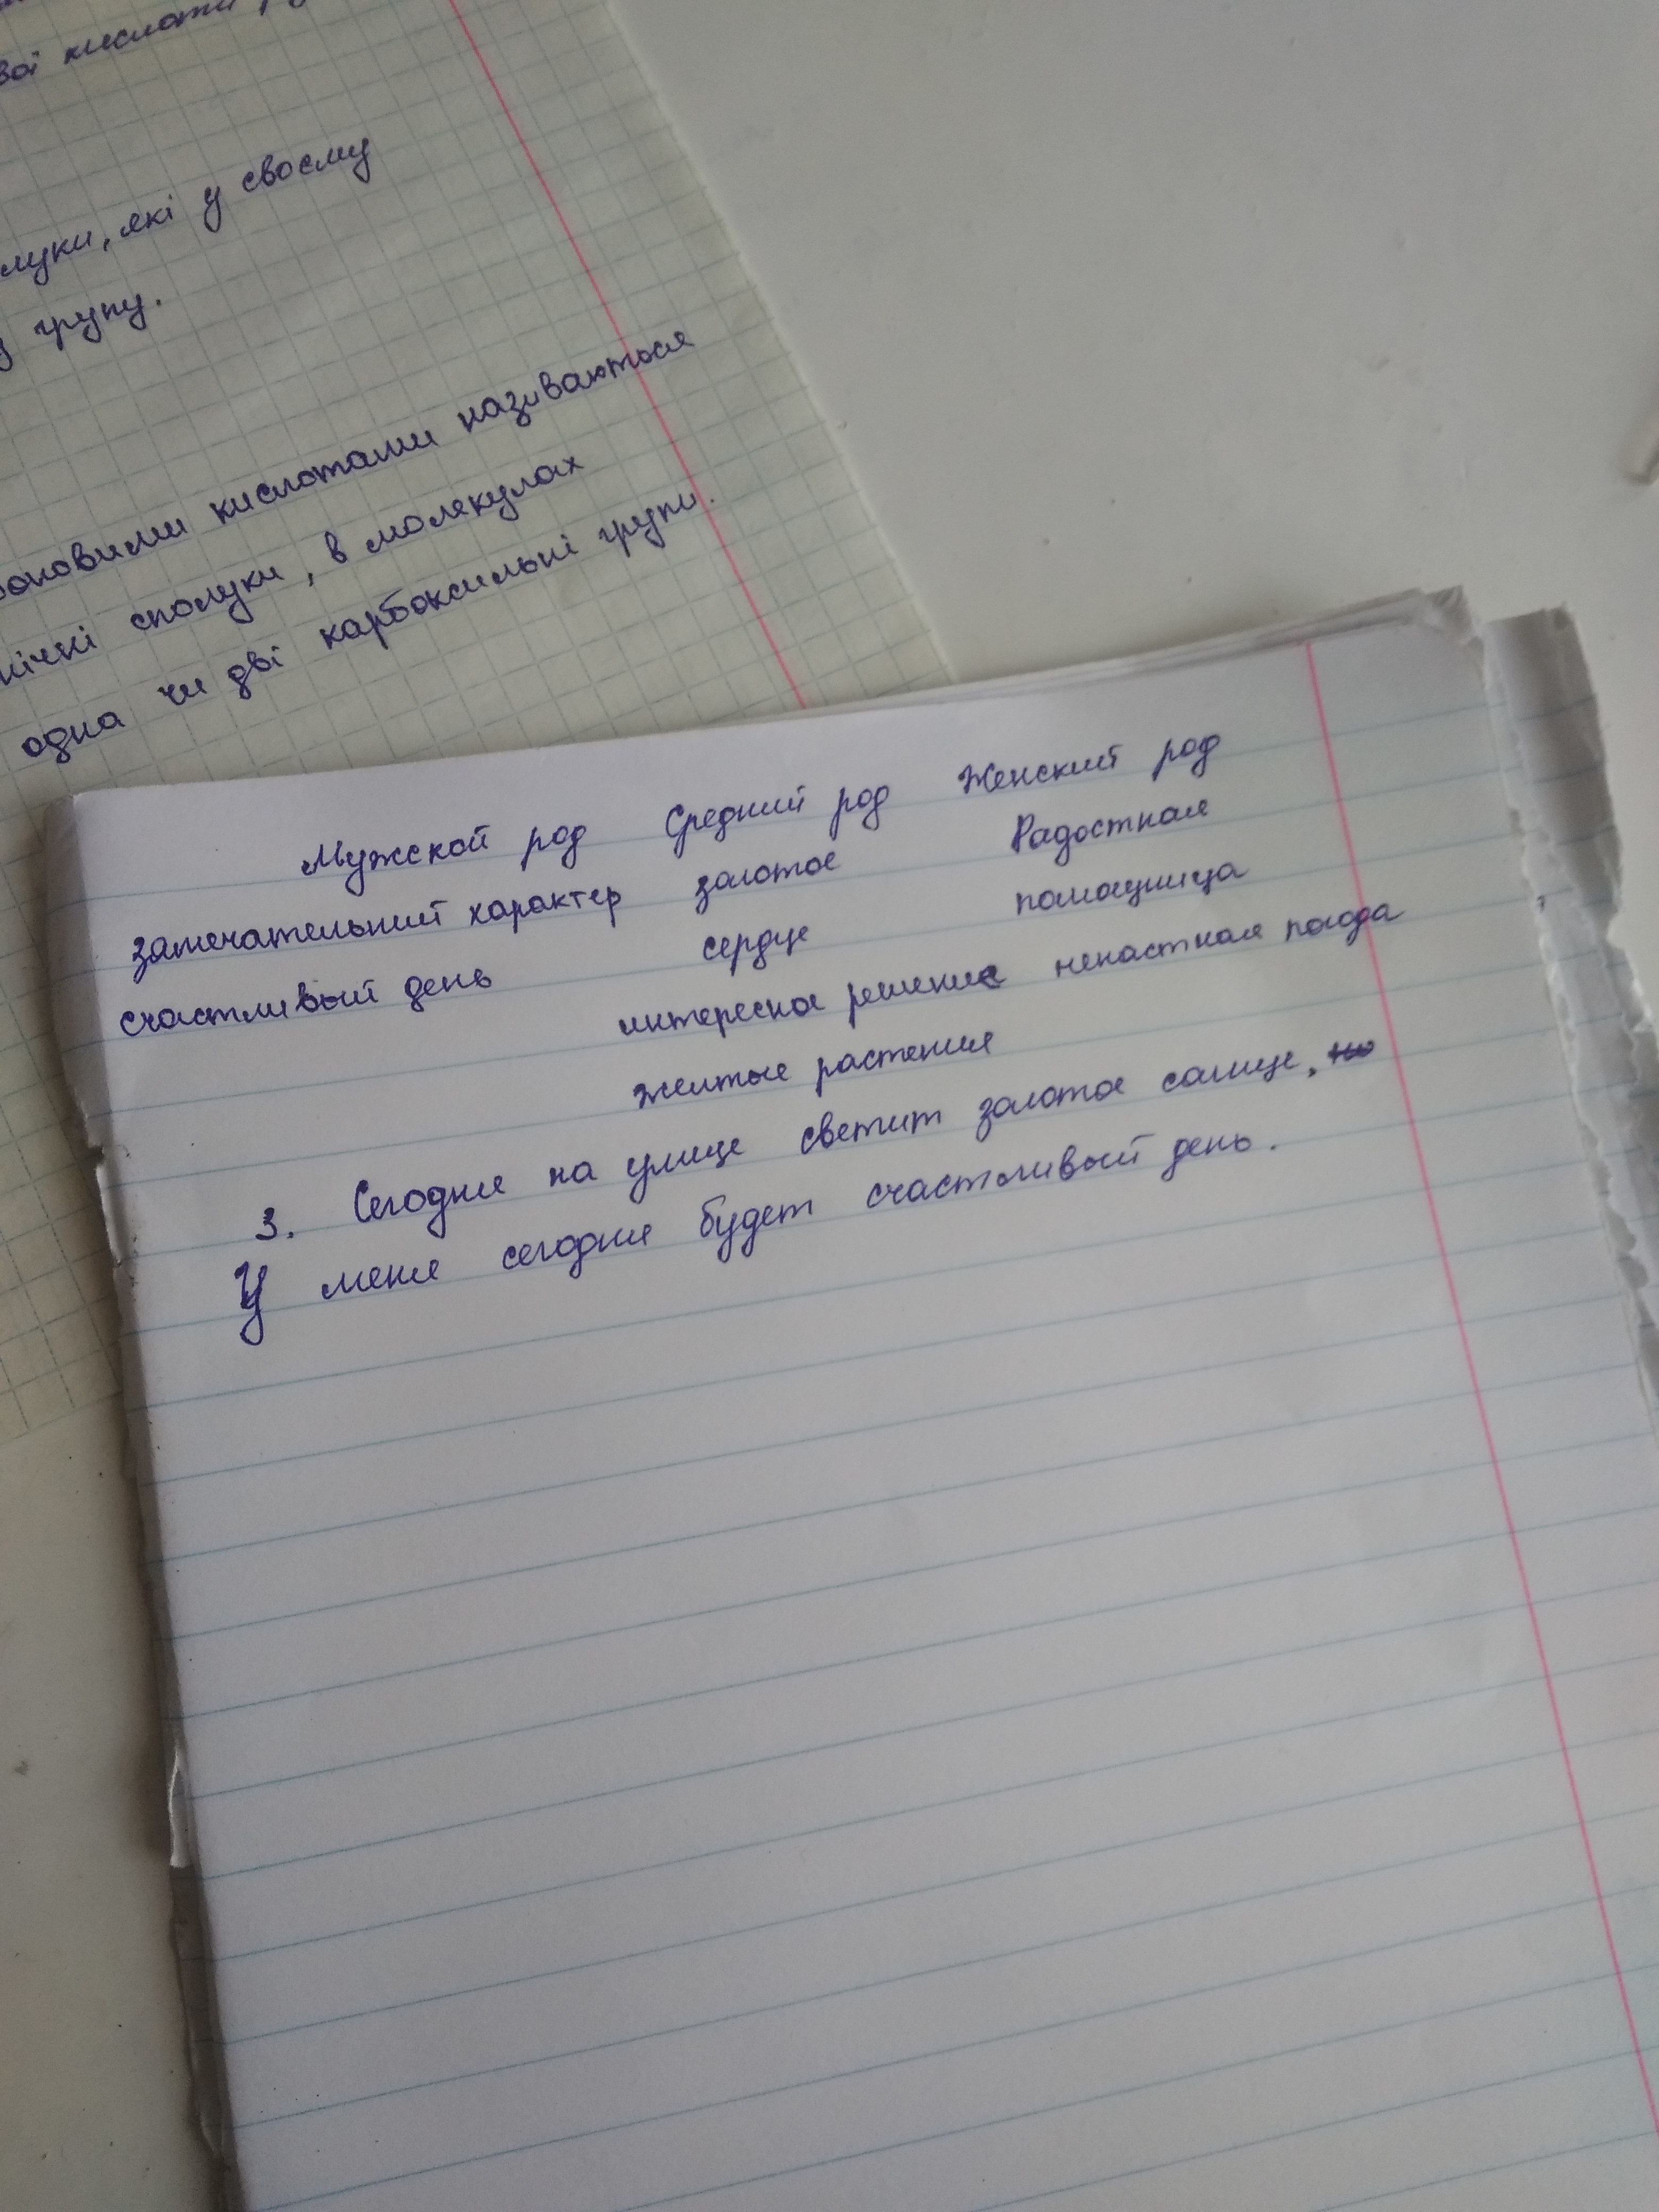 вої кислоти
луки, які у своєму
групу.
кислотами називаються
сполуки, в молекулах
одна чи дві карбоксильні групи.
Мужской род Средний род Женский род
замечательний характер золотое Радостная
счастливый день сердце помощница
интересное решение ненастная погода
желтые растения
3. Сегодня на улице светит золотое солнце.
У меня сегодня будет счастливый день.